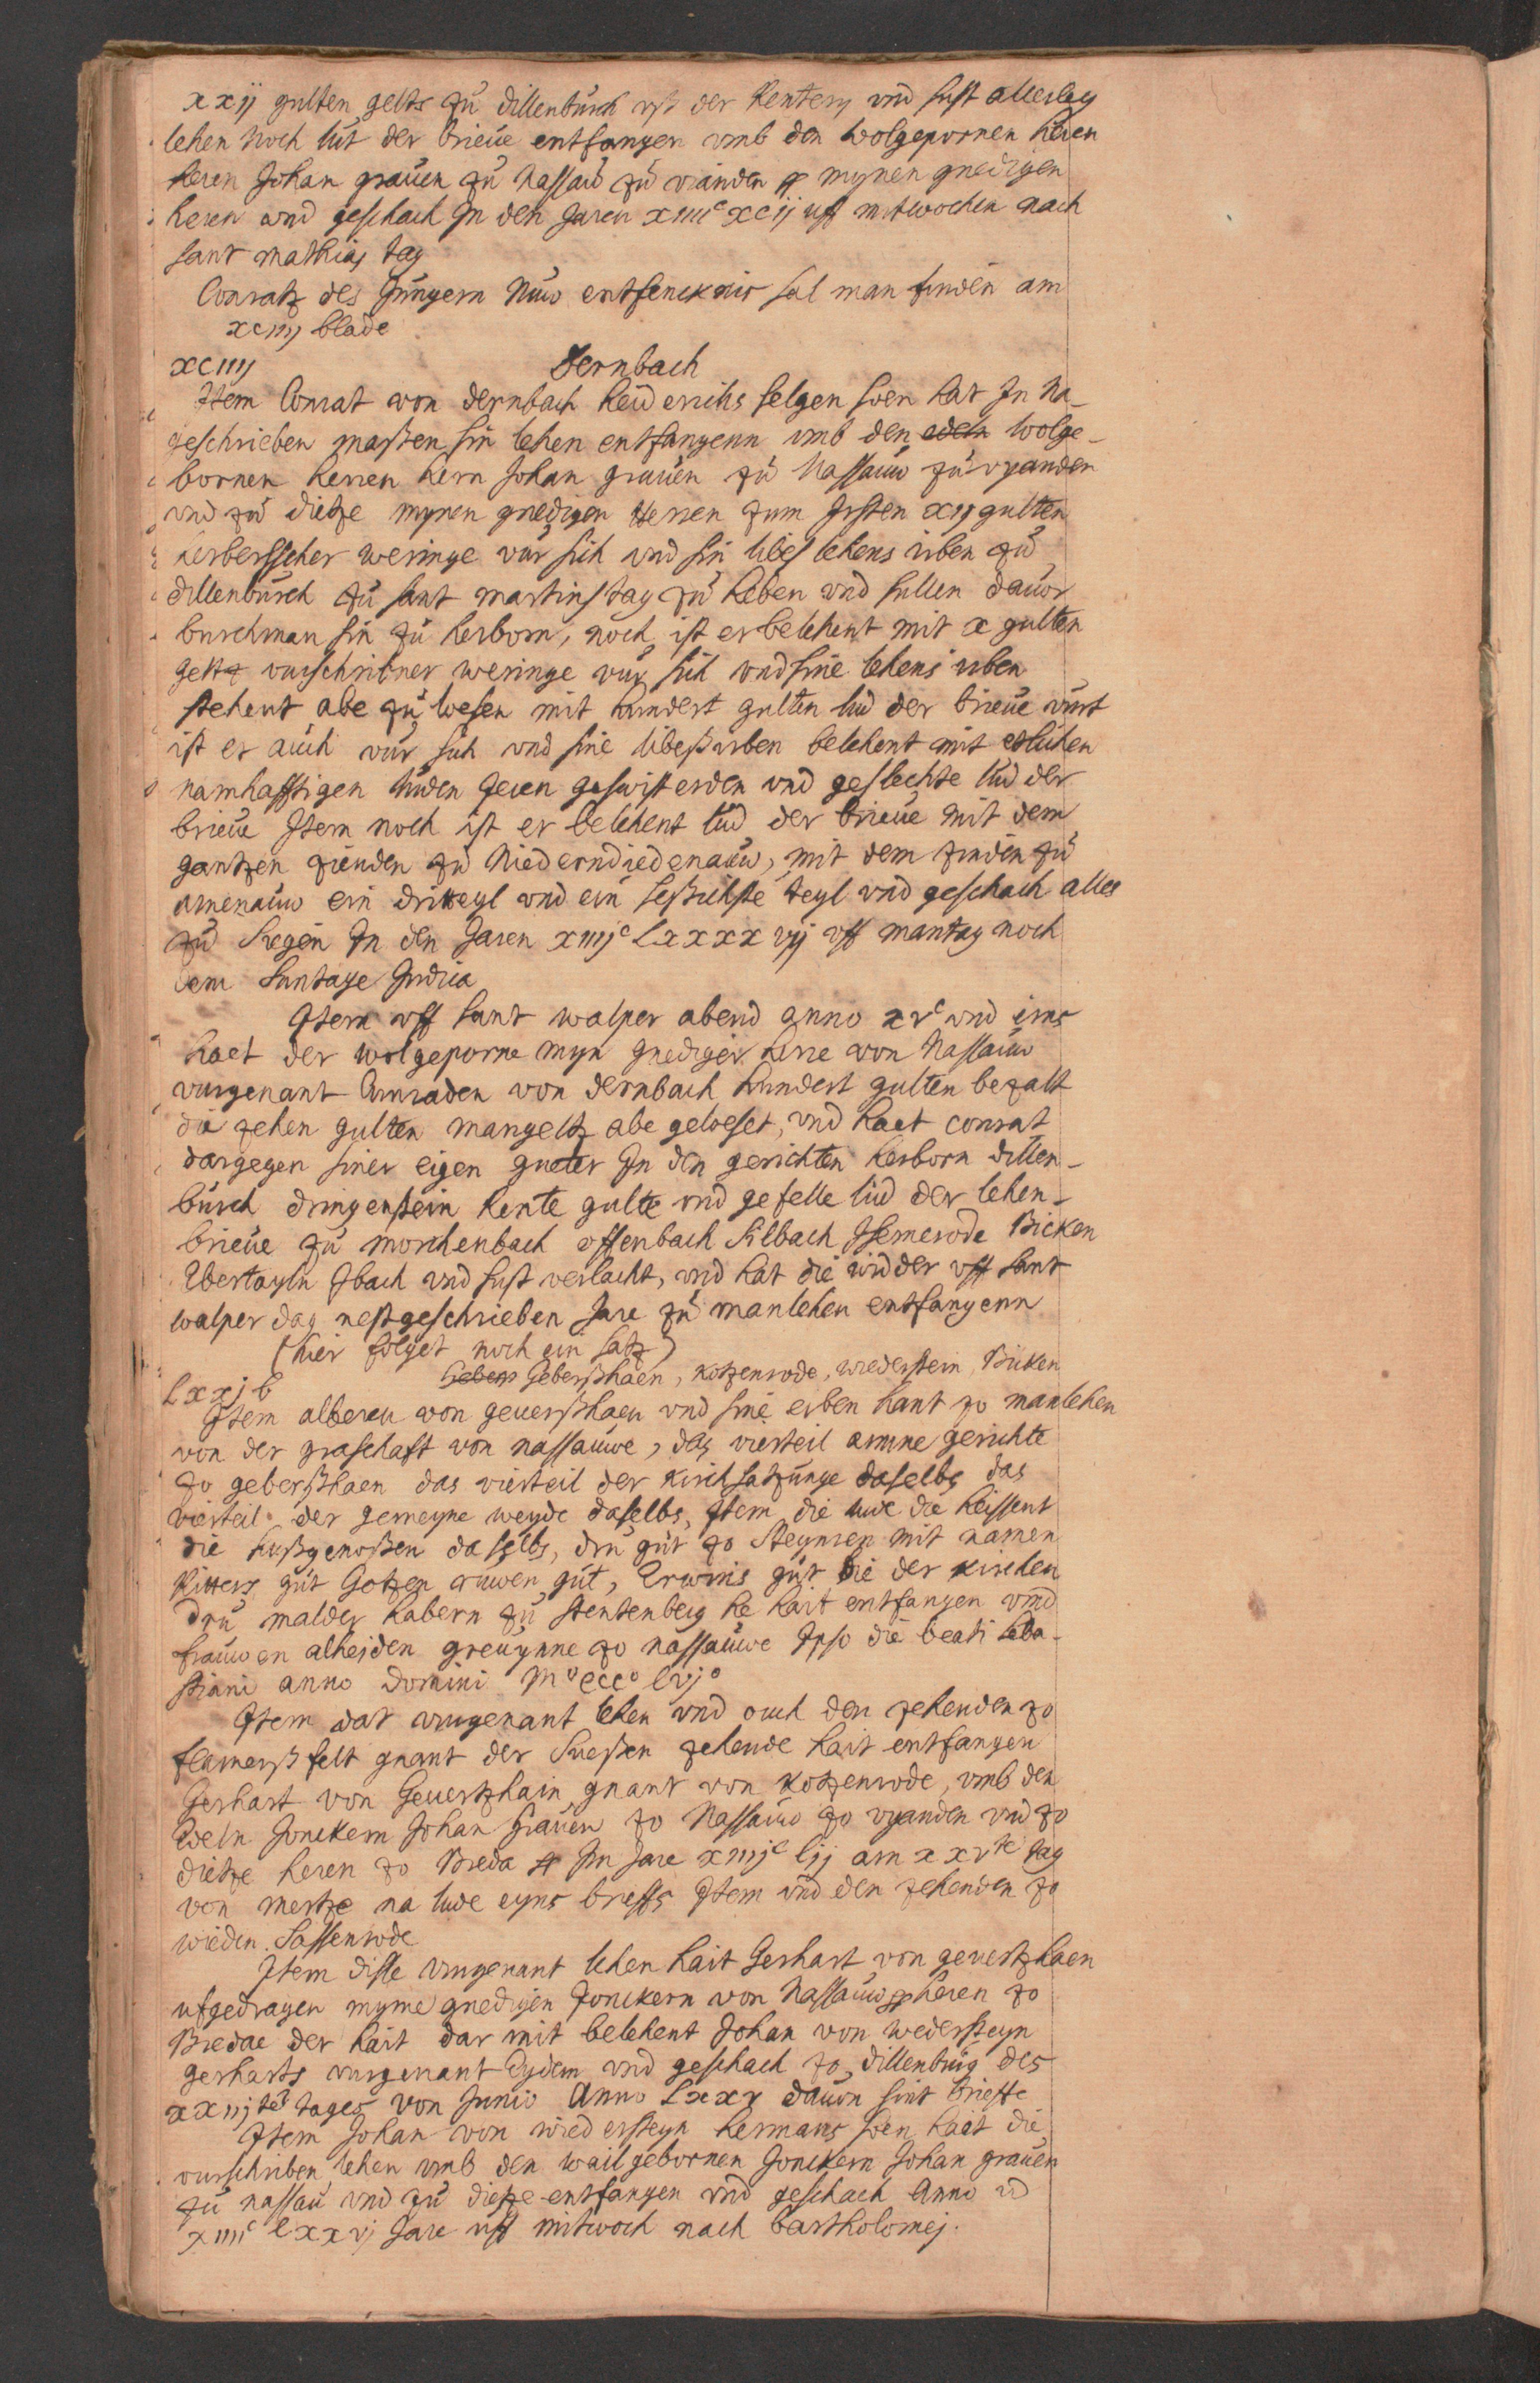 xxij gulten gelts zu dillenburch vß der Rentery vnd sust allerley
lehen noch lut der brieue entfangen vmb den wolgepornen heren
heren Johan grauen zu Nassaw zu vianden mynen gnedigen
heren vnd geschach In den Jaren xiiiic xcij uff mitwochen nach
sant mathias tag
Conratz des Jungern Nuw entfencknis sal man finden am
xciiij blade
xciiij Dernbach
Item Conrat von dernbach heiderichs selgen soen hat In Na-
geschrieben maßen sin lehen entfangenn vmb den edeln wolge-
bornen herren hern Johan grauen zu Nassauw zu vyanden
vnd zu dietze mynen gnedigen Herren zum Irsten xij gulten
herbersscher weringe vur sich vnd sin libes lehens irben zu
dillenburch zu sant martinstag zu heben vnd sullen dauor
burchman sin zu herborn, noch ist er belehent mit x gulten
geltz vurschribner weringe vur sich vnd sine lehens irben
stehent abe zu lesen mit hundert gulten lud der brieue vurt
ist er auch vur sich vnd sine libeß irben belehent mit etlichen
namhafftigen luden Jeren geswisterden vnd geslechte lud der
brieue Item noch ist er belehent lud der brieue mit dem
gantzen zienden zu Niederndiedenauw, mit dem zinden zu
amenauw ein dritteyl vnd ein seßichste teyl vnd geschach alles
zu Siegen In den Jaren xiiijc Lxxxxvij vff mantag noch
dem Suntage Judica
Item vff sant walper abend anno xvc vnd eins
haet der wolgeporne myn gnediger herre von Nassauw
vurgenant Conraden von dernbach hundert gulten bezalt
die zehen gulten mangeltz abe geloeset, vnd haet conrat
dargegen siner eigen gueter In den gerichten herborn dillen-
burch dringenstein Rente gulte vnd gefelle lud der lehen-
brieue zu morchenbach offenbach Silbach Isemerode Bicken
Ubertayln Ibach vnd sust verlacht, vnd hat die widder vff sant
walper dag nestgeschrieben Jare zu manlehen entfangenn
(hier folget noch ein satz)
Lxxj b Gebers Geberßhaen, kotzenrode, wiederstein, Bicken
Item alberen von geuerßhaen vnd sine erben hant zo manlehen
von der graschaft von nassauwe, das vierteil amme gerichte
zo geberßhaen das vierteil der kirchsatzunge daselbs das
vierteil der gemeyne weyde daselbs, Item die lude die heissent
die hußgenoßen daselbs, dru gut zo Steynren mit namen
Ritters gut Gotzen cruwen gut, Erwins gut bie der kirchen
dru malder habern zu stentenberg he hait entfangen vmb
frauwen alheiden greuynne zo nassauwe Ipso die beati seba-
stiani anno domini Mo cccco lvjo
Item dat vurgenant lehen vnd ouch den zehenden zo
flamerßfelt gnant der Sueßen zehende hait entfangen
Gerhart von Geuertzhain gnant von kotzenrode, vmb den
Edeln Jonckern Johan Grauen zo Nassauw zo vyanden vnd zo
dietze heren zo Breda Im Jare xiiijc lij am xxvte tag
von mertze na lude eyns brieffs Item vnd den zehenden zo
wieden Sassenrode
Item disse vurgenant lehen hait Gerhart von geuertzhaen
ufgedragen myme gnedigen Jonckern von Nassauw heren zo
Bredae der hait dar mit belehent Johan von wedersteyn
gerharts vurgenant Eydem vnd geschach zo dillenburg des
xxiijtes tages von Junio Anno Lxxv dauon sint brieffe
Item Johan von wiedersteyn hermans soen haet die
vurschriben lehen vmb den wailgebornen Jonckern Johan grauen
zu nassau vnd zu dietze entfangen vnd geschach Anno
xiiiic lxxvj Jare uff mitwoch nach bartholomej.